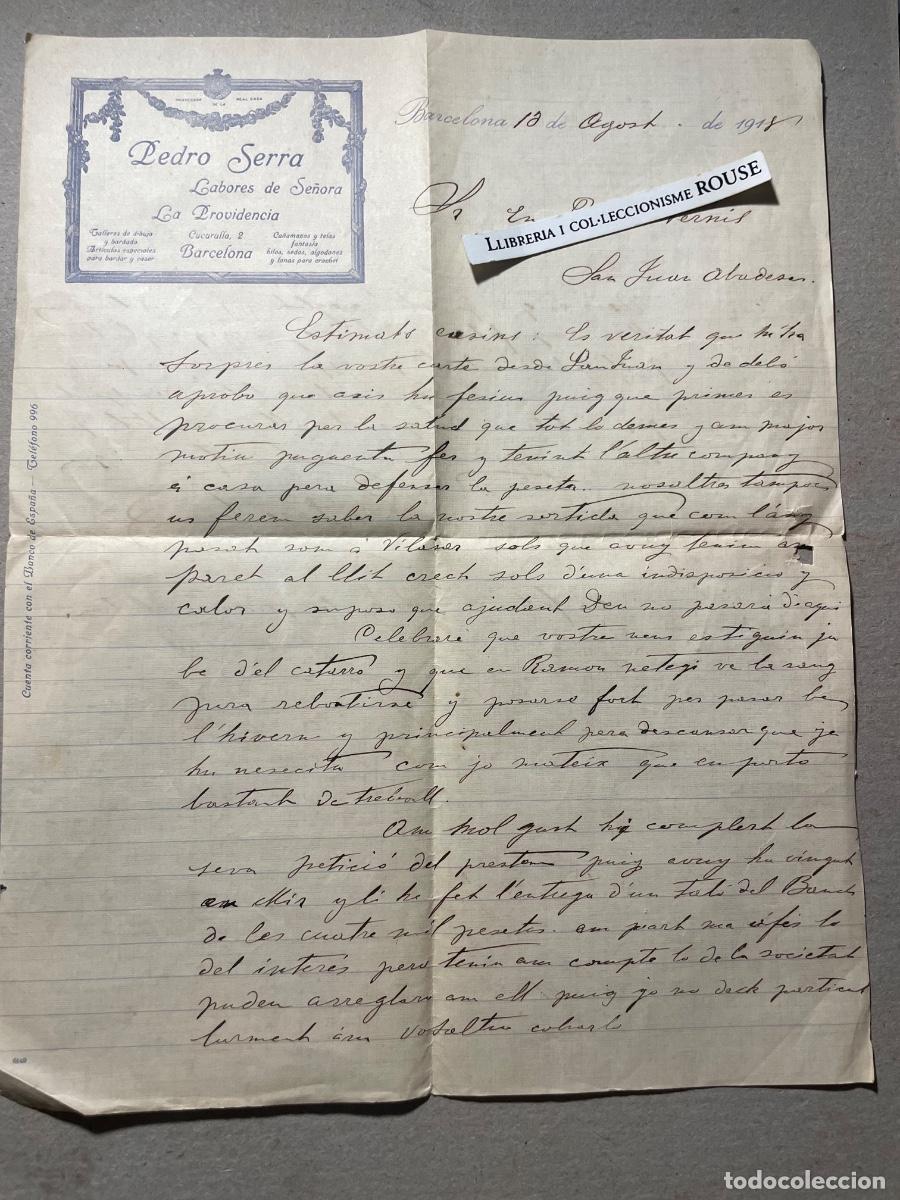 PROVEEDOR DE LA REAL CASA
Pedro Serra
Labores de Señora
La Providencia
Talleres de dibujo
y bordado
Artículos especiales
para bordar y coser
Cucurulla, 2
Barcelona
Cañamazos y telas
fantasía
hilos, sedas, algodones
y lanas para crochet
Cuenta corriente con el Banco de España — Teléfono 996
Barcelona 13 de Agost de 1918
LLIBRERIA I COL·LECCIONISME ROUSE
Sr En
San Juan Abadesas
Estimats cusins: Es veritat que m'ha
sorpres la vostre carta desde San Juan y de debó
aprobo que asis ho fesiu puig que primer es
procurar per la salud que tot lo demes y am major
motiu puguentu fer y tenint l'altre company
á casa pera defensar la peseta. nosaltres tampoc
us ferem saber la nostre sortida que com l'any
pasat som á Vilasar sols que avuy tenim
paret al llit crech sols d'una indisposició y
calor y suposo que ajudant Deu no pasará d'aqui
Celebraré que vostre nens estiguin ja
be d'el catarro y que en Ramon netegi ve la sang
pera rebatirse y posarse fort per pasar be
l'hivern y principalment pera descansar que ja
ho nesecita com jo mateix que en porto
bastant de treball.
Am mol gust hi complert la
seva petició del prestam puig avuy ha vingut
en Mir y li he fet l'entrega d'un taló del Banch
de les cuatre mil pesetas. am part ma ofés lo
del interés pero tenin am compte lo de la societat
puden arreglaro am ell puig jo no dech particu
larment am vosaltres cobrarlo
todocoleccion